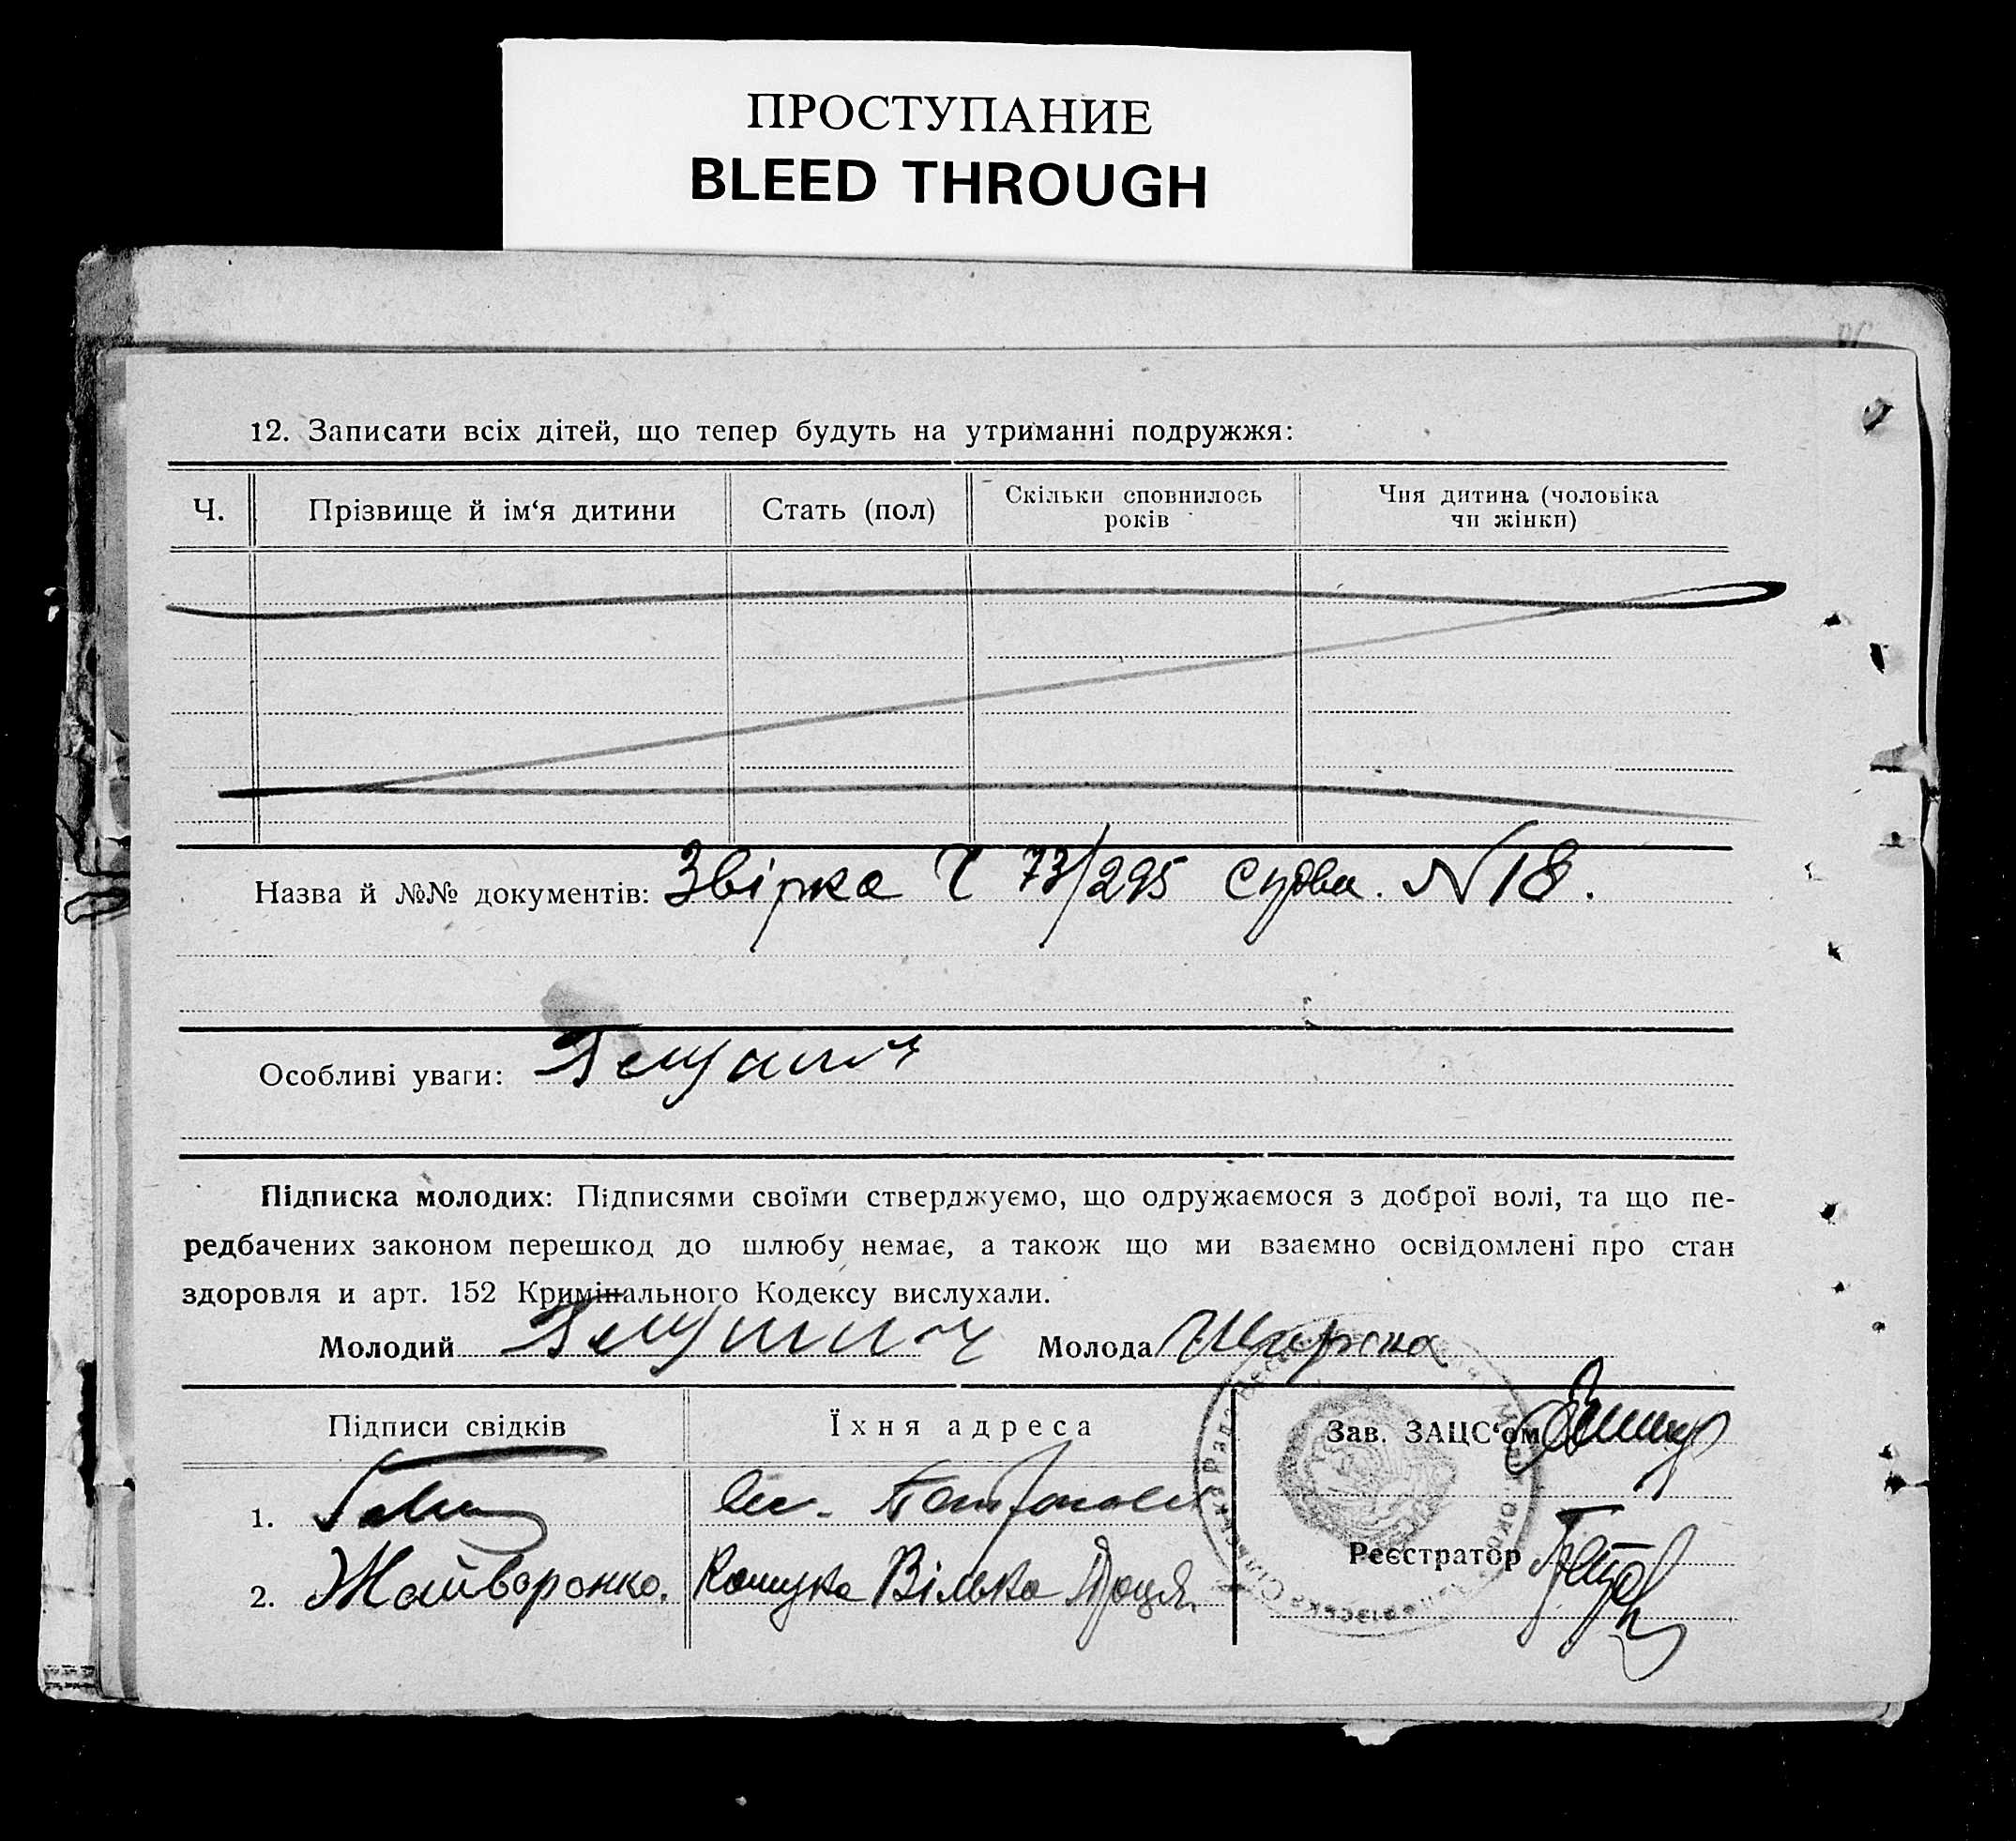 ПРОСТУПАНИЕ
BLEED THROUGH
12. Записати всіх дітей, що тепер будуть на утриманні подружжя:
Ч. Прізвище й ім‘я дитини Стать (пол) Скільки сповнилось років Чия дитина (чоловіка чи жінки)
Назва й №№ документів: Звірка Ч 73/295 N 18.
Особливі уваги:
Підписка молодих: Підписями своїми стверджуємо, що одружаємося з доброї волі, та що пе-
редбачених законом перешкод до шлюбу немає, а також що ми взаємно освідомлені про стан
здоровля и арт. 152 Кримінального Кодексу вислухали.
Молодий Молода
Підписи свідків Їхня адреса Зав. ЗАЦС‘ом
1.
Реєстратор
2. Жайворонко. Вілька